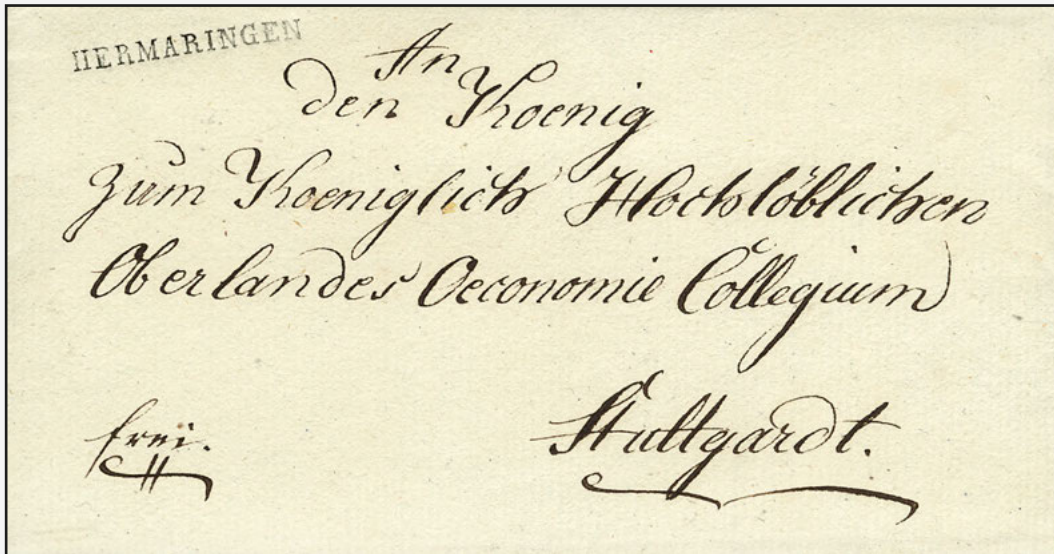 HERMARINGEN
An
den Koenig
zum Koeniglich Hochlöblichen
Oberlandes Oeconomie Collegium
frei.
Stuttgardt.